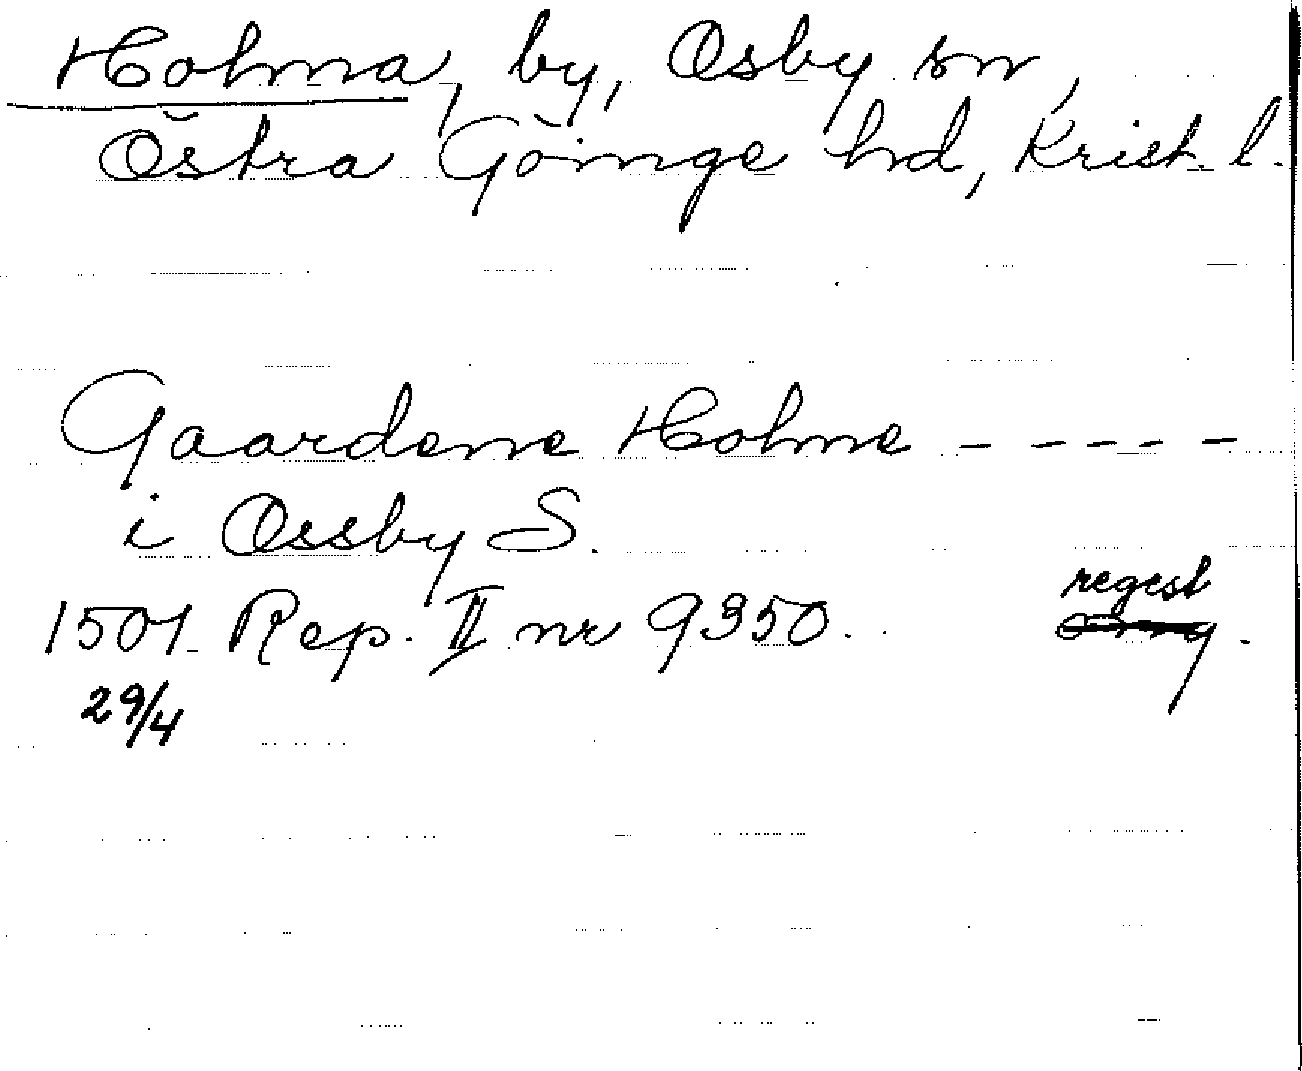 Holma, by, Osby sn,
Östra Göinge hd, Krist. l.
Gaardene Holme - - - - -
i Ossby S.
regest
1501 Rep. II nr 9350.
29/4